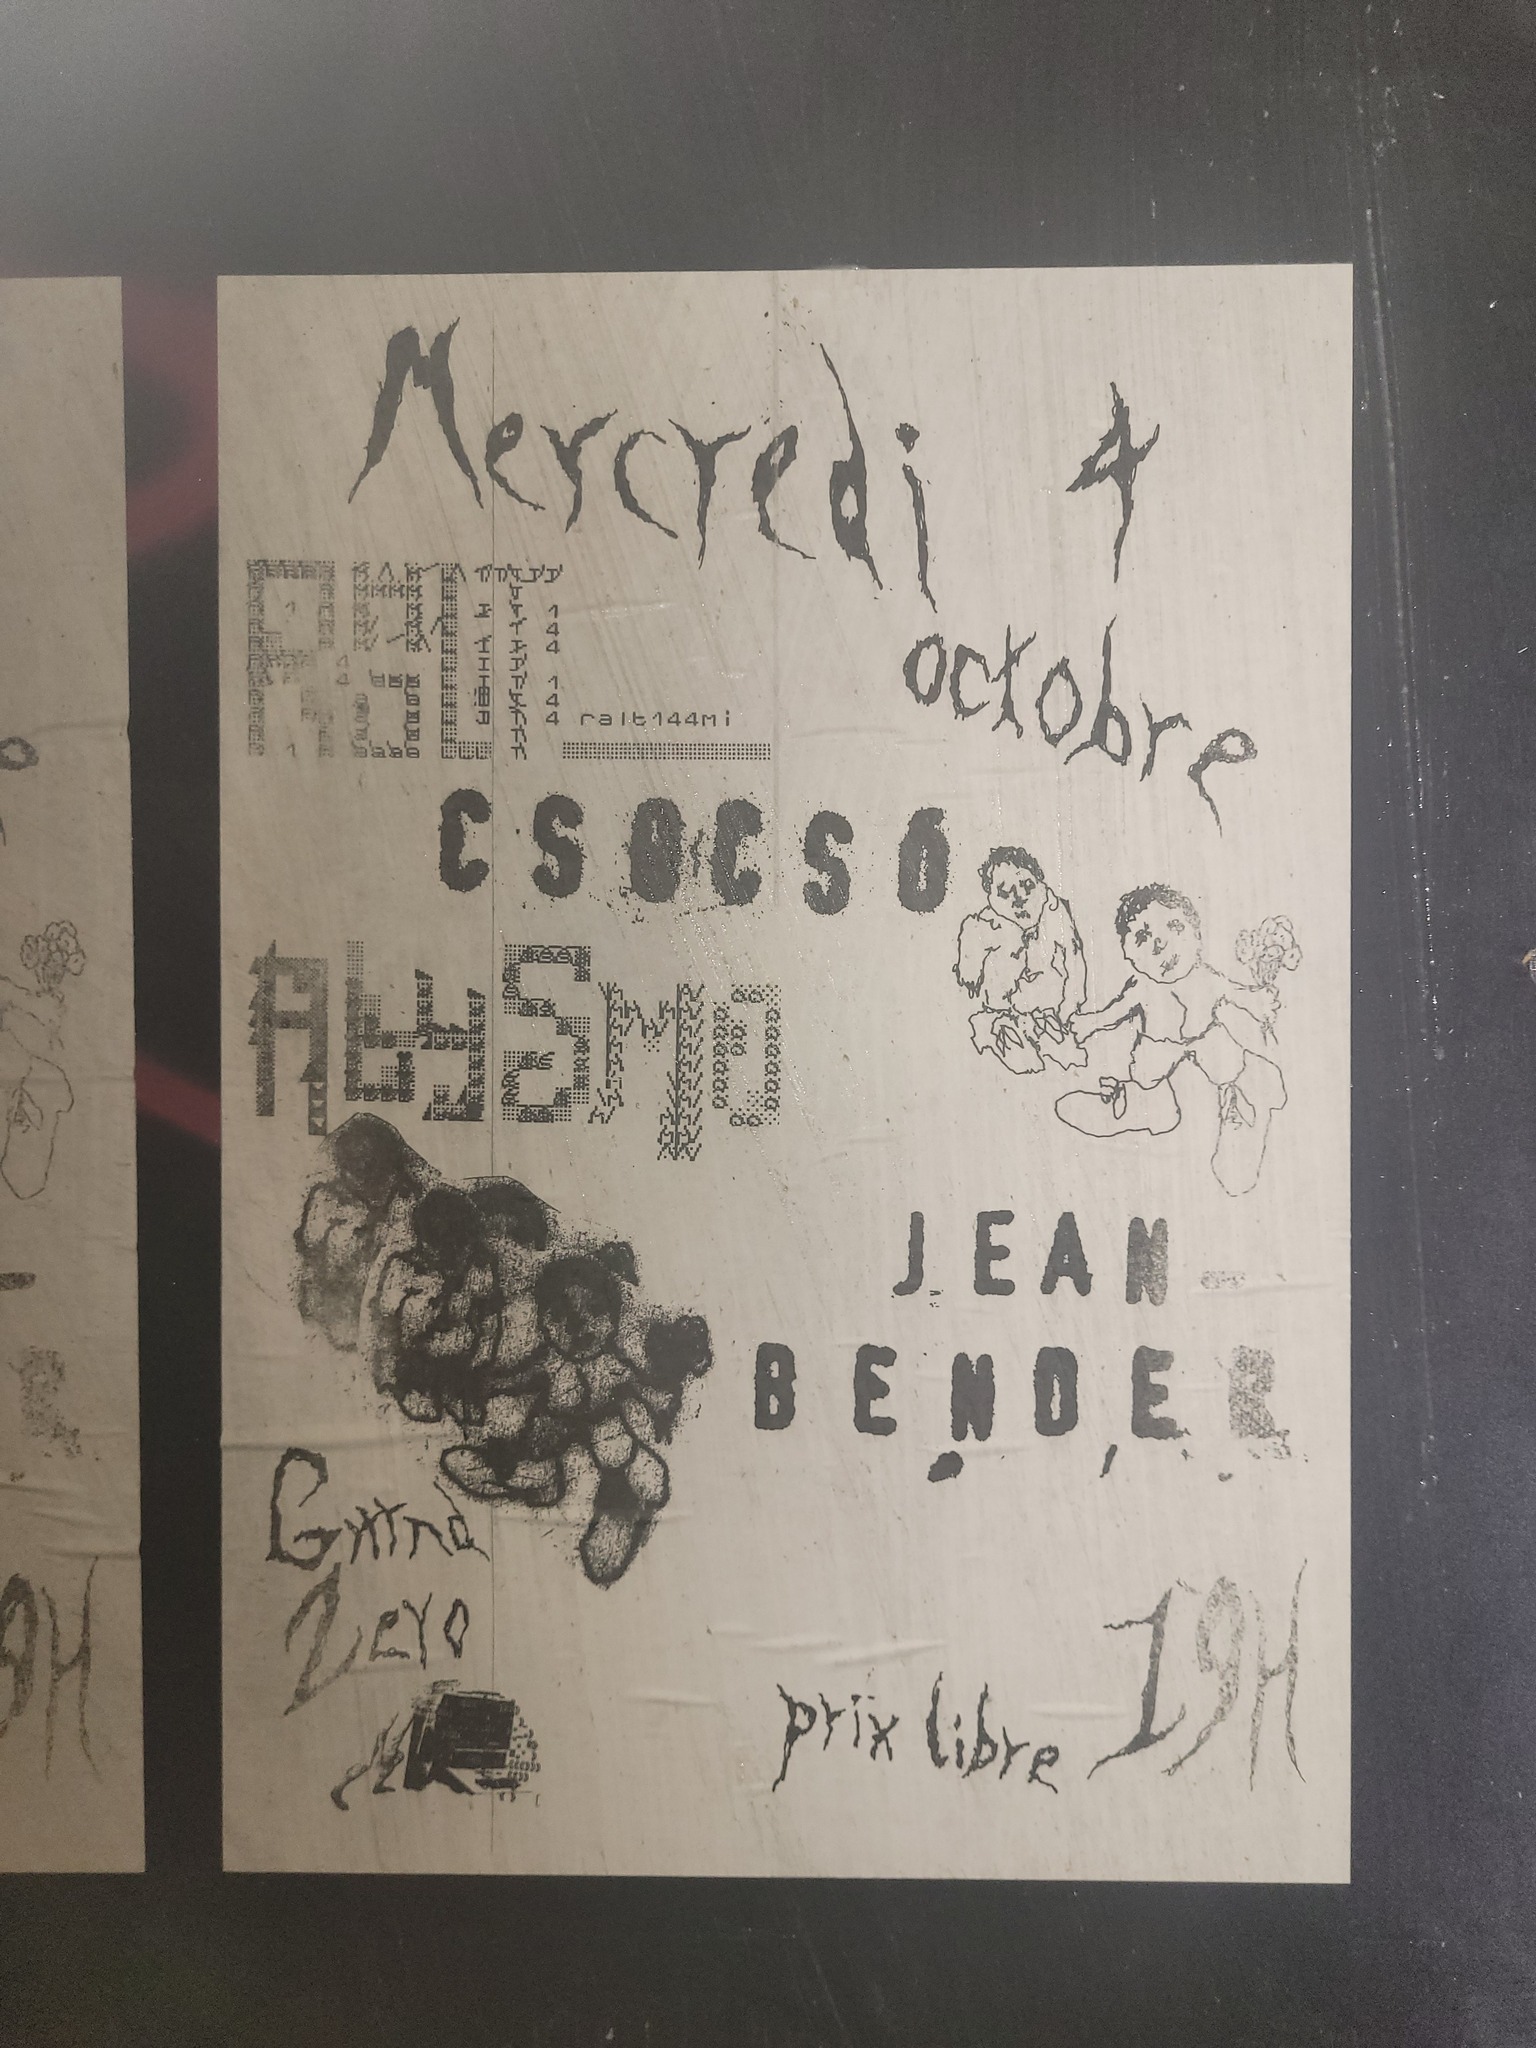 Mercredi 4
octobre
RALT
144
144
ralt144mi
CSOCSÓ
AbySMO
JEAN-
BENDER
Grrrnd
Zero
prix libre 19H
9H